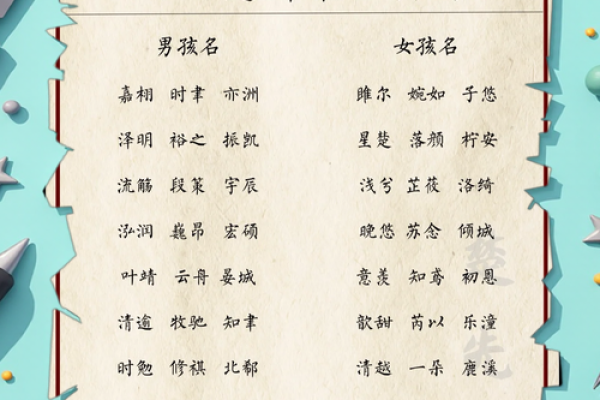 男孩名 女孩名
嘉栩 时聿 亦洲 雎尔 婉如 子悠
泽明 裕之 振凯 星楚 落颜 柠安
流觞 段策 宇辰 浅兮 芷筱 洛绮
泓润 巍昂 宏硕 晚悠 苏念 倾城
叶靖 云舟 晏城 意羡 知鸢 初恩
清逾 牧驰 知聿 歆甜 芮以 乐潼
时勉 修祺 北郗 清越 一朵 鹿溪